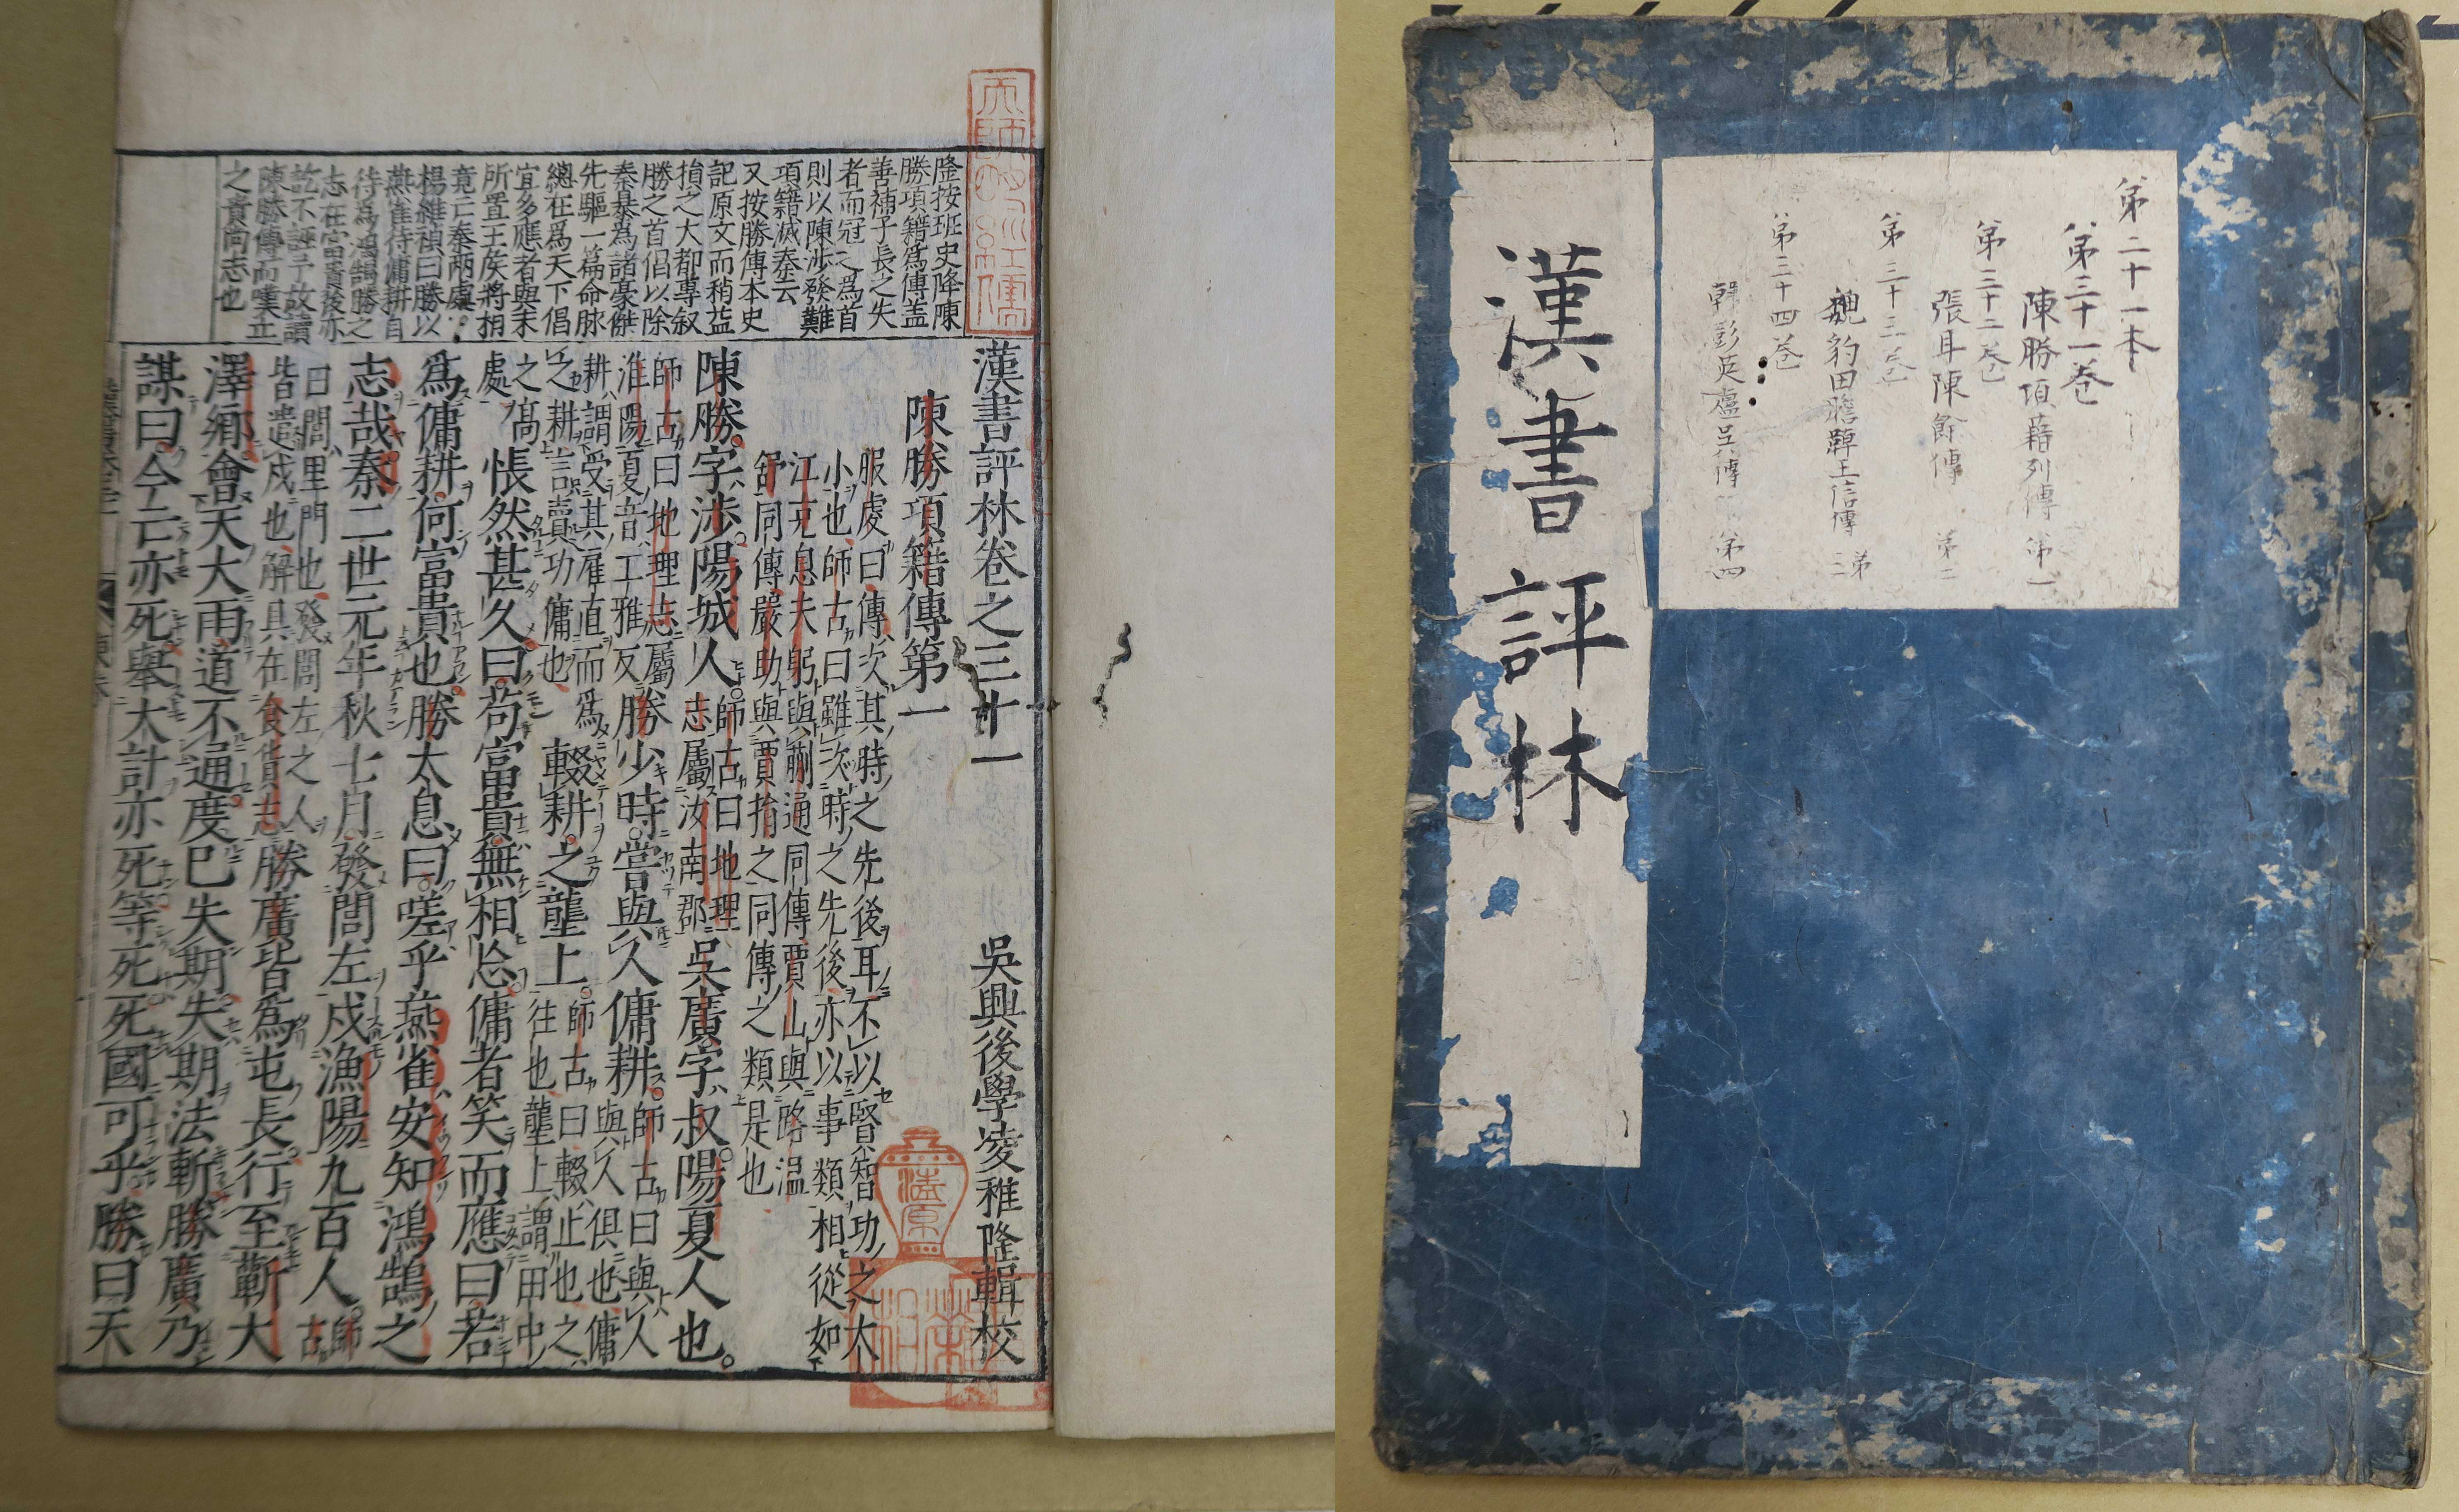 漢書評林卷之三十一
吳興後學凌稚隆輯校
陳勝項籍傳第一
服虔曰傳次其時之先後耳不以賢智功之大
小也師古曰雖次時之先後亦以事類相從如
江充息夫躬與蒯通同傳賈山與路溫
舒同傳嚴助與賈捐之同傳之類是也
陳勝字涉陽城人
師古曰地理
志屬汝南郡
吳廣字叔陽夏人也
師古曰地理志屬
淮陽夏音工雅反
勝少時嘗與人傭耕
師古曰與人
與人俱也傭
耕謂受其雇直而爲
之耕言賣功傭也
輟耕之壟上
師古曰輟止也之
往也壟上謂田中
之高
處
悵然甚久曰苟富貴無相忘傭者笑而應曰若
爲傭耕何富貴也勝太息曰嗟乎燕雀安知鴻鵠之
志哉秦二世元年秋七月發閭左戍漁陽九百人
師
古
曰閭里門也發閭左之人
皆遣戍也解具在食貨志
勝廣皆爲屯長行至蘄大
澤鄉會天大雨道不通度已失期失期法斬勝廣乃
謀曰今亡亦死舉大計亦死等死死國可乎勝曰天
隆按班史降陳
勝項籍爲傳蓋
善補子長之失
者而冠之爲首
則以陳涉發難
項籍滅秦云
又按勝傳本史
記原文而稍益
損之大都專叙
勝之首倡以除
秦暴爲諸豪傑
先驅一篇命脉
總在爲天下倡
宜多應者與末
所置王侯將相
竟亡秦兩處
楊維禎曰勝以
燕雀待傭耕自
待爲鴻鵠勝之
志在富貴後亦
訖不誣予故讀
陳勝傳而嘆立
之貴尚志也
漢書評林
第二十一本
第三十一卷
陳勝項藉列傳 第一
第三十二卷
張耳陳餘傳 第二
第三十三卷
魏豹田儋韓王信傳 第三
第三十四卷
韓彭英盧吳傳 第四